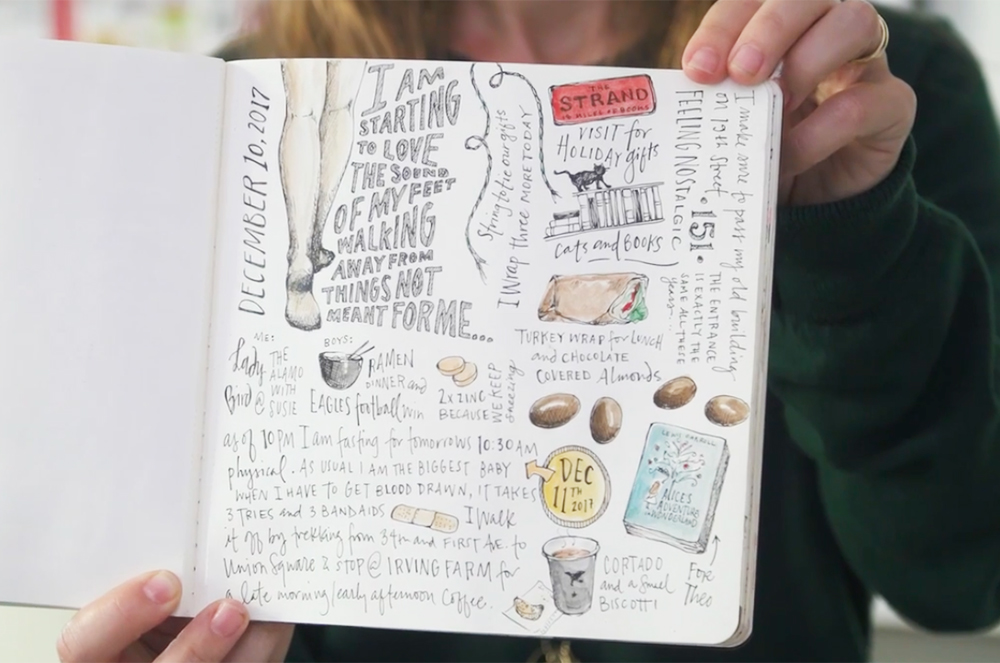 DECEMBER 10, 2017
I AM
STARTING
TO LOVE
THE SOUND
OF MY FEET
WALKING
AWAY FROM
THINGS NOT
MEANT FOR ME...
String to tie our gifts
I Wrap three MORE TODAY
THE
STRAND
18 MILES OF BOOKS
VISIT for
HOLIDAY gifts
cats and BOOKS
I make sure to pass my old building
on 19th Street. 151.
FEELING NOSTALGIC
THE ENTRANCE
IS EXACTLY THE
SAME ALL THESE
years...
TURKEY WRAP for LUNCH
and CHOCOLATE
COVERED Almonds
ME:
Lady
Bird @
THE
ALAMO
WITH
SUSIE
BOYS:
RAMEN
DINNER and
EAGLES football win
2x ZINC
BECAUSE
WE KEEP
sneezing
as of 10PM I am fasting for tomorrows 10:30AM
physical. AS USUAL I AM THE BIGGEST BABY
WHEN I HAVE TO GET BLOOD DRAWN, IT TAKES
3 TRIES and 3 BANDAIDS I Walk
it off by trekking from 34th and FIRST Ave. to
Union Square & STOP @ IRVING FARM for
a late morning/early afternoon Coffee.
DEC
11TH
2017
LEWIS CARROLL
ALICE'S
ADVENTURES
IN WONDERLAND
For
Theo
CORTADO
and a small
BISCOTTI